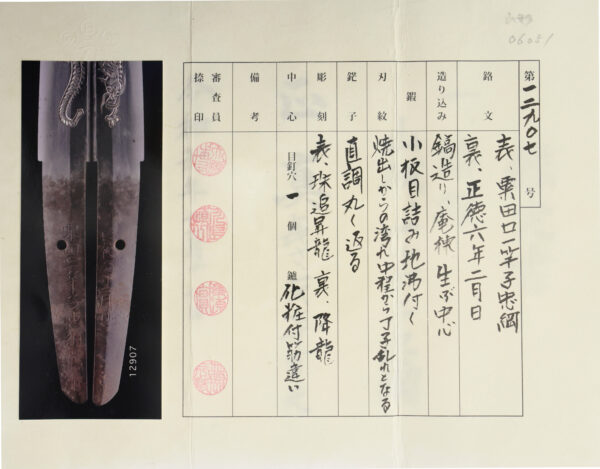 第一二九〇七号
銘文 表、粟田口一竿子忠綱
裏、正徳六年二月日
造り込み 鎬造り、庵棟 生ぶ中心
鍛 小板目詰み地沸付く
刃紋 焼出しからの湾れ中程から丁子乱れとなる
鋩子 直調丸く返る
彫刻 表、珠追昇龍 裏、降龍
中心 目釘穴 一個 鑢 化粧付筋違い
備考
審査員
捺印
12907